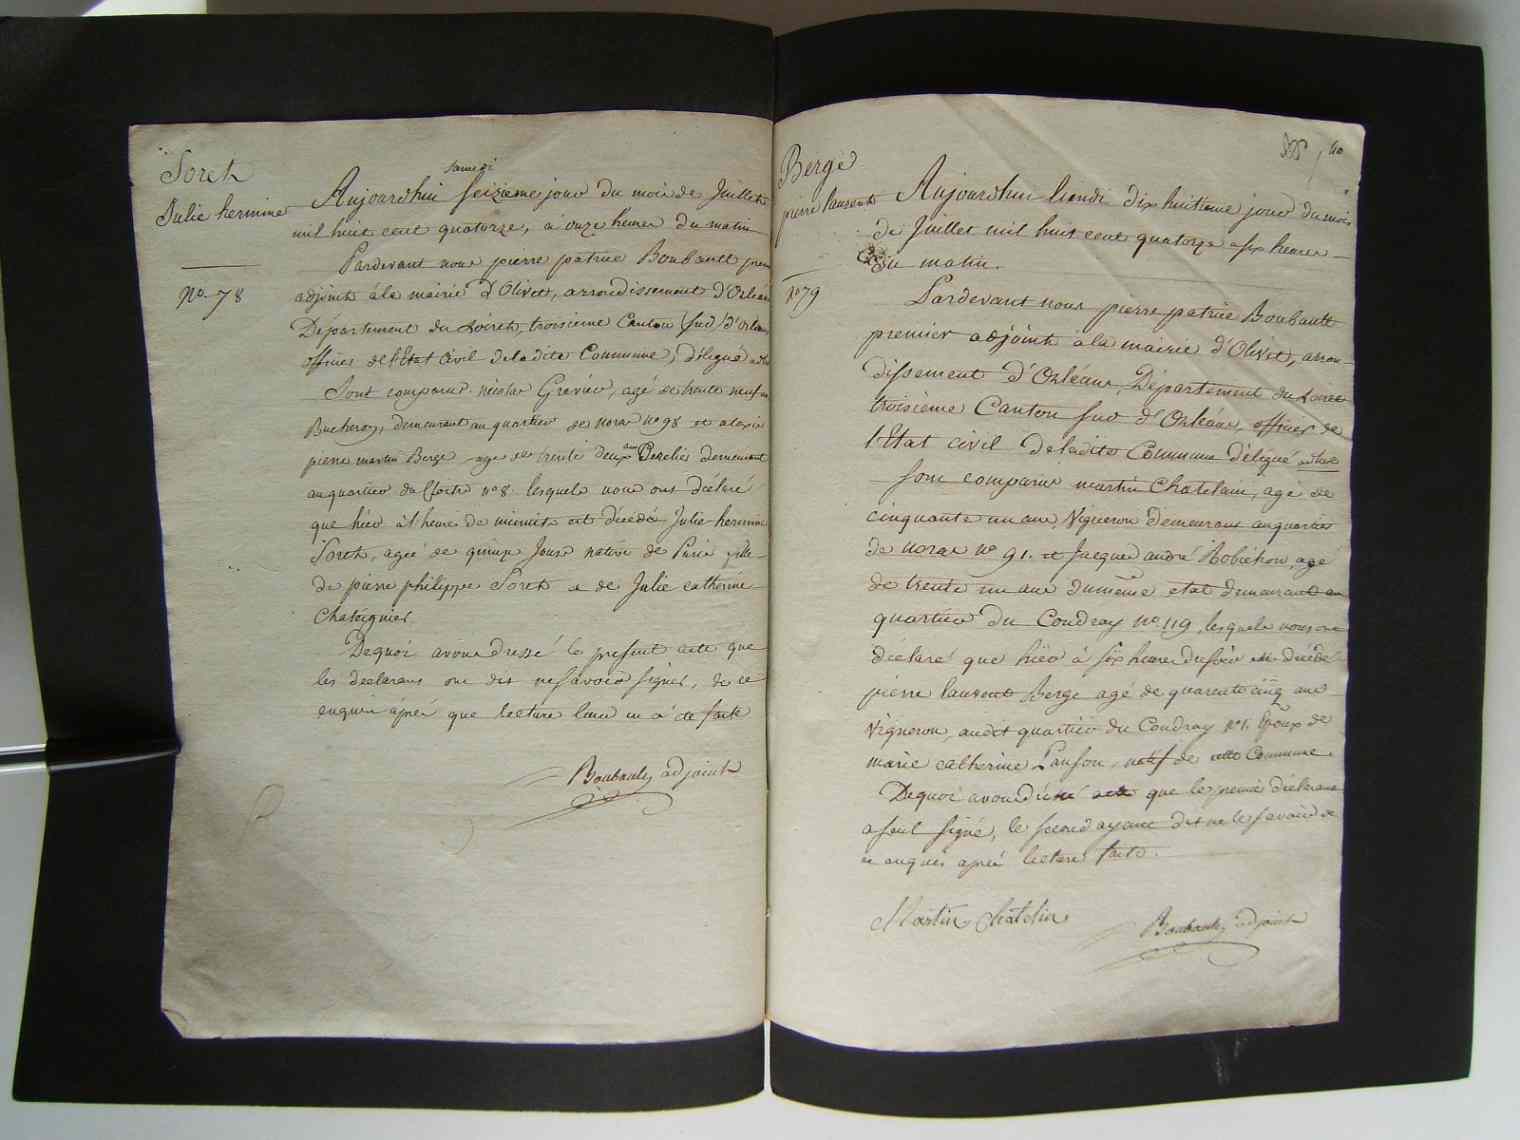 Soreth
Julie hermine
No. 78
samedi
Aujourdhui seizieme jour du mois de Juillet
mil huit cent quatorze, à onze heures du matin
Pardevant nous pierre patrice Boubault prem
adjoint à la mairie d'Olivet, arrondissement d'Orléans
Département du Loiret, troisieme Canton (sud) d'Orléans
officier de l'Etat Civil de la dite Commune, délégué
Sont comparus nicolas Grevier, agé de trente neuf
Bucheron, demeurant au quartier de noras no 98 et alexis
pierre martin Berge agé de trente deux ans demeurant
au quartier no 8 lesquels nous ont déclaré
que hier à l'heure de minuit est décédée Julie hermine
Soreth, agée de quinze Jours native de Paris fille
de pierre philippe Soreth et de Julie catherine
Chateignier
Dequoi avons dressé le present acte que
les déclarans ont dit ne savoir signer, de ce
enquis après que lecture leur en a été faite
Boubault adjoint
40
Bergé
pierre laurent
No 79
Aujourdhui lundi dix huitieme jour du mois
de Juillet mil huit cent quatorze a six heures
du matin.
Pardevant nous pierre patrice Boubault
premier adjoint à la mairie d'Olivet, arron-
dissement d'Orléans, Département du Loiret
troisième Canton sud d'Orléans, officier de
l'Etat civil de la dite Commune délégué
sont comparus martin Chatelain, agé de
cinquante un ans, Vigneron demeurant au quartier
de noras no 91. et Jacques andré Robichon, agé
de trente un ans du même etat demeurant au
quartier du Coudray no 119, lesquels nous ont
déclaré que hier à six heures du soir est décédé
pierre laurent Berge agé de quarante cinq ans
Vigneron, audit quartier du Coudray no 1. Epoux de
marie catherine Panson, natif de cette Commune.
Dequoi avons dressé acte que le premier déclarant
a seul signé, le second ayant dit ne le savoir de
ce enquis après lecture faite.
Martin Chatelin
Boubault adjoint